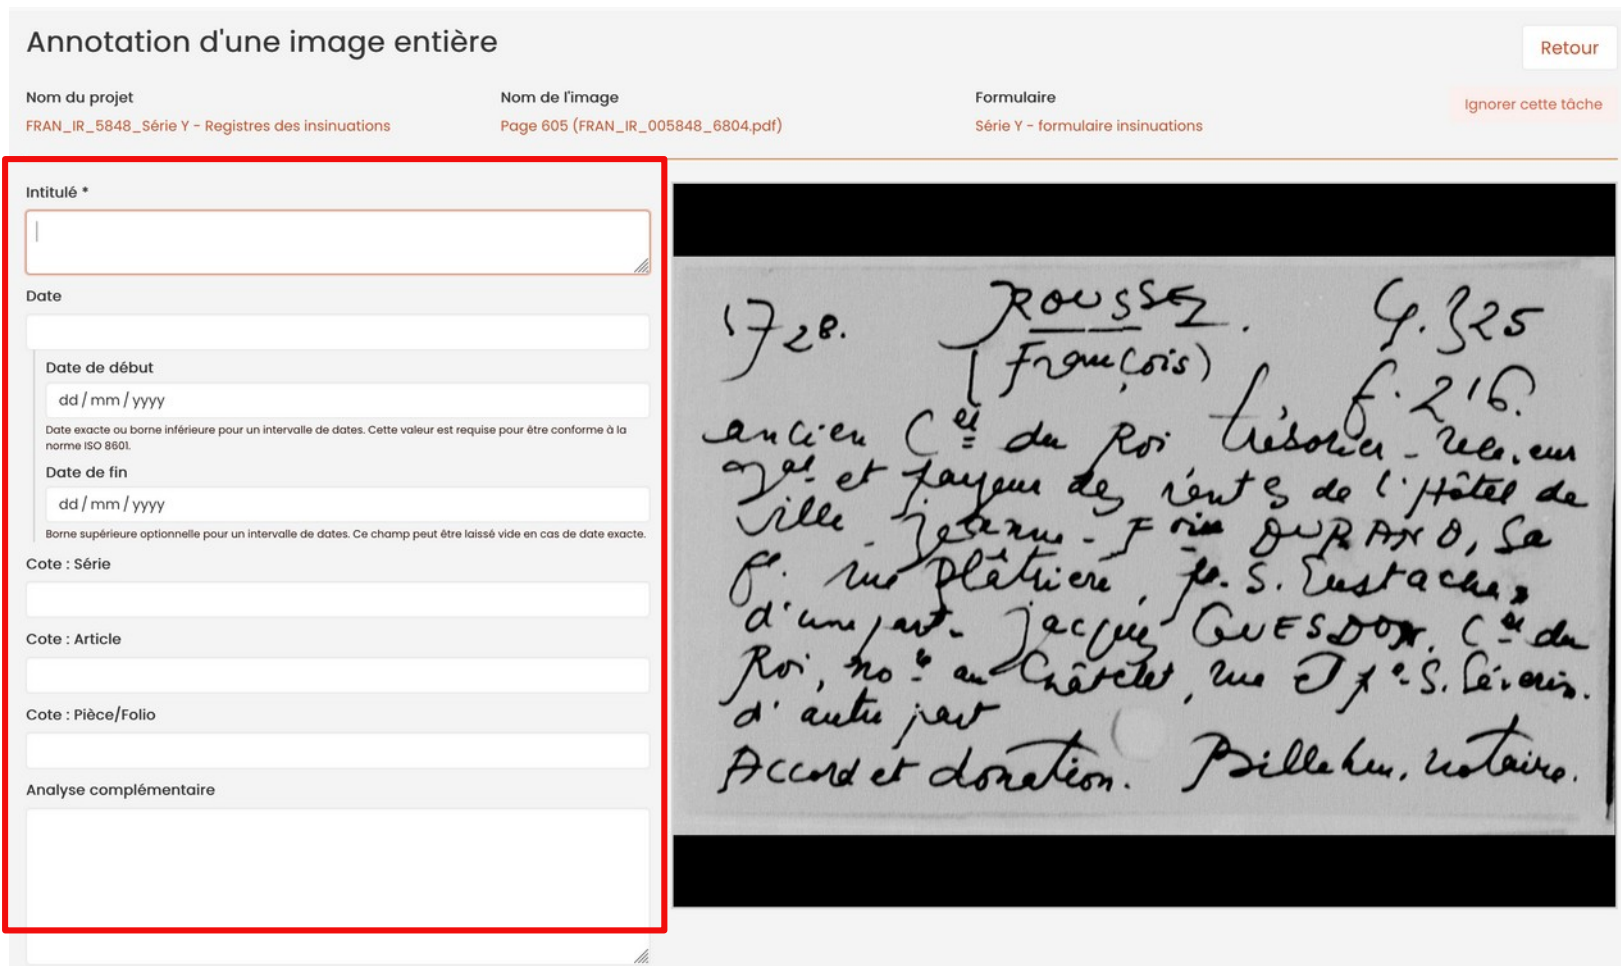 Annotation d'une image entière
Retour
Nom du projet
FRAN_IR_5848_Série Y - Registres des insinuations
Nom de l'image
Page 605 (FRAN_IR_005848_6804.pdf)
Formulaire
Série Y - formulaire insinuations
Ignorer cette tâche
Intitulé *
Date
Date de début
dd / mm / yyyy
Date exacte ou borne inférieure pour un intervalle de dates. Cette valeur est requise pour être conforme à la
norme ISO 8601.
Date de fin
dd / mm / yyyy
Borne supérieure optionnelle pour un intervalle de dates. Ce champ peut être laissé vide en cas de date exacte.
Cote : Série
Cote : Article
Cote : Pièce/Folio
Analyse complémentaire
1728. ROUSSEL. Y. 325
(François) f. 216.
ancien Cer du Roi trésorier - receveur
gal et payeur des rentes de l'Hôtel de
Ville - Jeanne - Foise DURAND, sa
f. rue Plâtrière, pe. S. Eustache,
d'une part - Jacques GUESDON, Cer du
Roi, nore au Châtelet, rue et pe - S. Séverin.
d'autre part
Accord et donation. notaire.